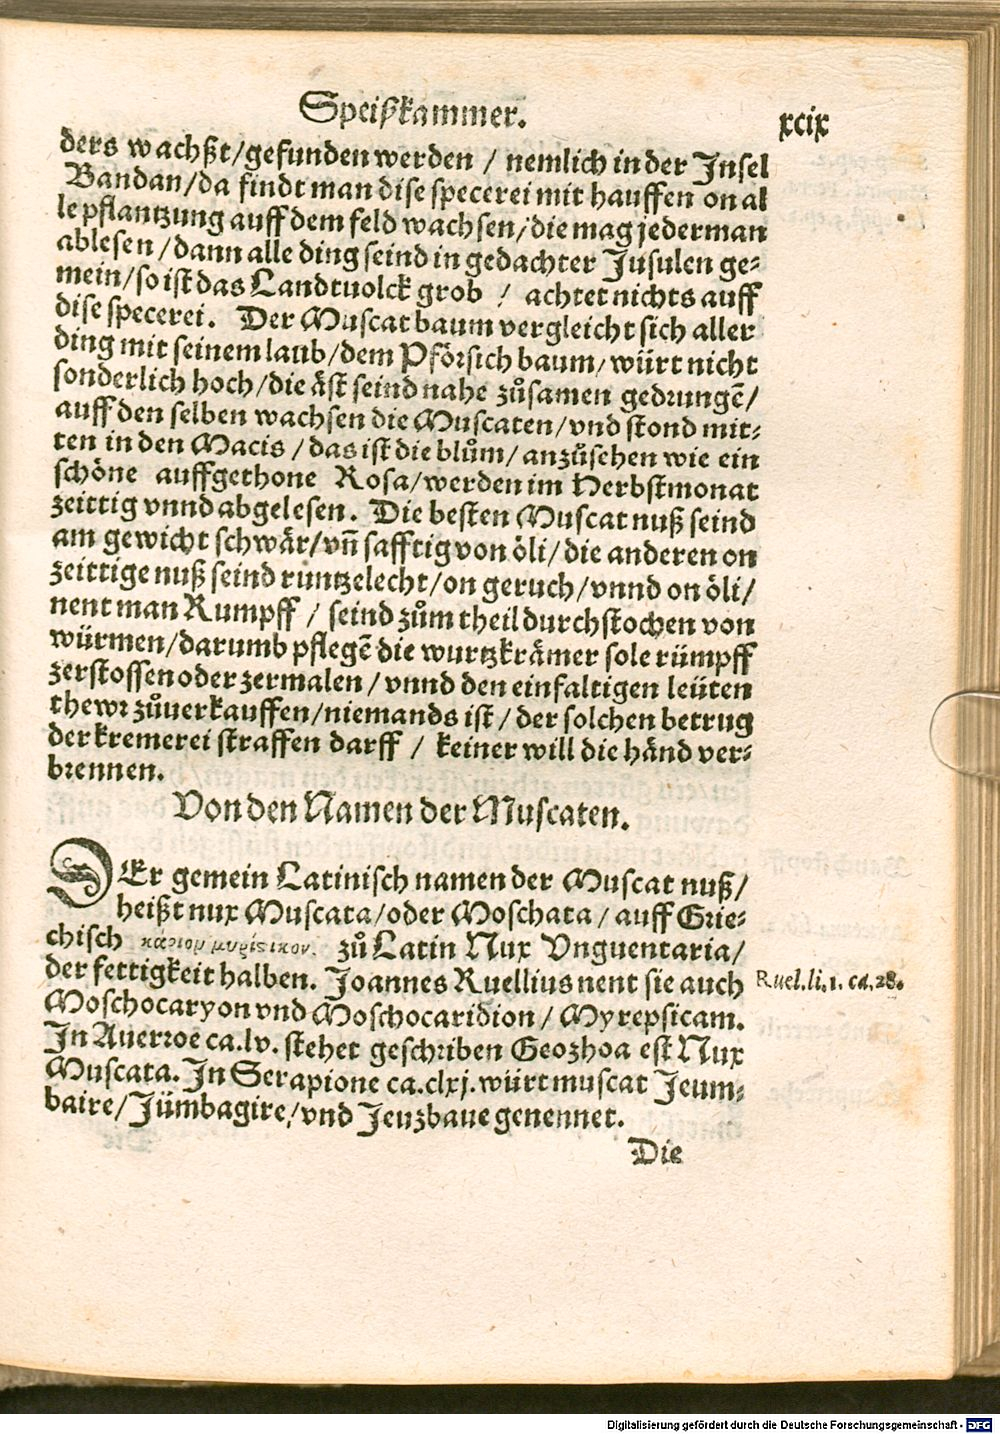 Speißkammer. xcix
ders wachßt/gefunden werden / nemlich in der Insel
Bandan/da findt man dise specerei mit hauffen on al
le pflantzung auff dem feld wachsen/die mag jederman
ablesen/dann alle ding seind in gedachter Jusulen ge-
mein/so ist das Landtuolck grob / achtet nichts auff
dise specerei. Der Muscat baum vergleicht sich aller
ding mit seinem laub/dem Pförsich baum/würt nicht
sonderlich hoch/die äst seind nahe zůsamen gedrungẽ/
auff den selben wachsen die Muscaten/vnd stond mit-
ten in den Macis / das ist die blům/anzůsehen wie ein
schöne auffgethone Rosa/werden im Herbstmonat
zeittig vnnd abgelesen. Die besten Muscat nuß seind
am gewicht schwär/vñ safftig von öli/die anderen on
zeittige nuß seind runtzelecht/on geruch/vnnd on öli/
nent man Rumpff / seind zům theil durchstochen von
würmen/darumb pflegẽ die wurtzkrämer sole rümpff
zerstossen oder zermalen/vnnd den einfaltigen leüten
thewr zůuerkauffen/niemands ist/der solchen betrug
der kremerei straffen darff / keiner will die händ ver-
brennen.
Von den Namen der Muscaten.
DEr gemein Latinisch namen der Muscat nuß/
heißt nux Muscata/oder Moschata/auff Grie-
chisch κάριομ μυρίςικον. zů Latin Nux Vnguentaria/
der fettigkeit halben. Joannes Ruellius nent sie auch
Ruel.li.1. ca.28.
Moschocaryon vnd Moschocaridion/Myrepsicam.
In Auerroe ca.lv. stehet geschriben Geozhoa est Nux
Muscata. In Serapione ca.clxj.würt muscat Jeum-
baire/Jümbagire/vnd Jeuzbaue genennet.
Die
Digitalisierung gefördert durch die Deutsche Forschungsgemeinschaft - DFG